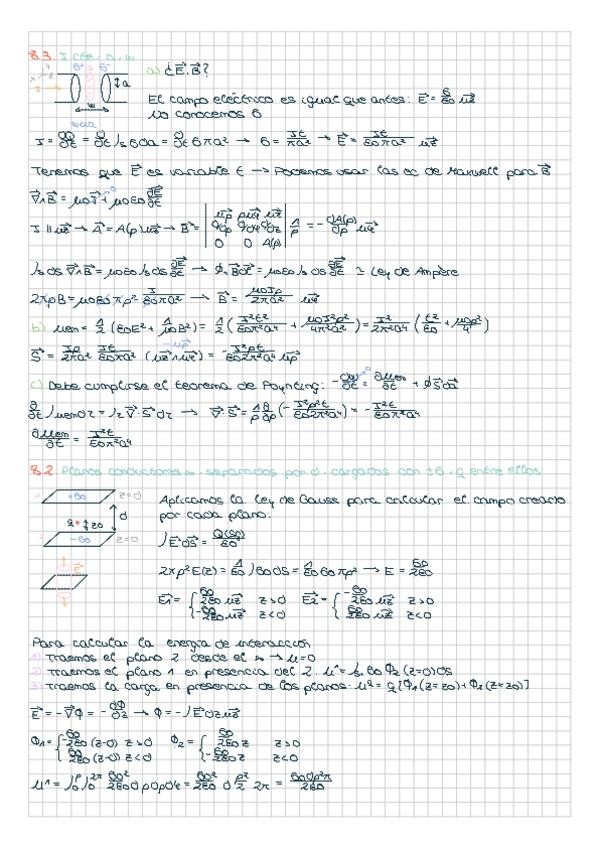 8.3 I cte. a. w
a) ¿E⃗, B⃗?
El campo eléctrico es igual que antes: E⃗ = σ/ε0 u⃗z
No conocemos σ
I = ∂Q/∂t = ∂/∂t ∫s σ da = ∂/∂t σπa² → σ = It/πa² → E⃗ = It/ε0πa² u⃗z
Tenemos que E⃗ es variable t → Podemos usar las ec de Maxwell para B⃗
∇⃗∧B⃗ = μ0J⃗ + μ0ε0 ∂E⃗/∂t
J ∥ u⃗z → A⃗ = A(ρ) u⃗z → B⃗ = | u⃗ρ ρu⃗φ u⃗z | ∂/∂ρ ∂/∂φ ∂/∂z | 0 0 A(ρ) | 1/ρ = - ∂A(ρ)/∂ρ u⃗φ
∫s dS ∇⃗∧B⃗ = μ0ε0 ∫s dS ∂E⃗/∂t → ∮c B⃗ dl⃗ = μ0ε0 ∫s dS ∂E⃗/∂t ≃ Ley de Ampère
2πρB = μ0ε0 πρ² I/ε0πa² → B⃗ = μ0Iρ/2πa² u⃗φ
b) uem = 1/2 (ε0E² + 1/μ0 B²) = 1/2 (I²t²/ε0π²a⁴ + μ0I²ρ²/4π²a⁴) = I²/2π²a⁴ (t²/ε0 + μ0ρ²/4)
S⃗ = Iρ/2πa² It/ε0πa² (u⃗z∧u⃗φ) = - I²ρt/ε02π²a⁴ u⃗ρ
c) Debe cumplirse el teorema de Poynting: - dW/dt = ∂Uem/∂t + ∮S⃗ da⃗
∂/∂t ∫ uem dτ = ∫τ ∇⃗·S⃗ dτ → ∇⃗·S⃗ = 1/ρ ∂/∂ρ (- I²ρ²t/ε02π²a⁴) = - I²t/ε0π²a⁴
∂uem/∂t = I²t/ε0π²a⁴
8.2 Planos conductores ∞. separados por d. cargados con ±σ. q entre ellos
+σ0 z=d
q z0 d
-σ0 z=0
Aplicamos la Ley de Gauss para calcular el campo creado
por cada plano.
∫E⃗·dS⃗ = Q(S)/ε0
2πρ²E(z) = 1/ε0 ∫σ0 dS = 1/ε0 σ0πρ² → E = σ0/2ε0
E⃗1 = { σ0/2ε0 u⃗z z>d, -σ0/2ε0 u⃗z z<d E⃗2 = { -σ0/2ε0 u⃗z z>0, σ0/2ε0 u⃗z z<0
Para calcular la energía de interacción
1) Traemos el plano 2 desde el ∞ → u=0
2) Traemos el plano 1 en presencia del 2: u¹ = ∫s σ0 Φ2 (z=d) dS
3) Traemos la carga en presencia de los planos: u² = q[Φ1(z=z0) + Φ2(z=z0)]
E⃗ = -∇⃗Φ = - ∂Φ/∂z → Φ = -∫E⃗ dz u⃗z
Φ1 = { -σ0/2ε0 (z-d) z>d, σ0/2ε0 (z-d) z<d Φ2 = { σ0/2ε0 z z>0, -σ0/2ε0 z z<0
u¹ = ∫0^ρ ∫0^2π σ0²/2ε0 d ρ dρ dφ = σ0²/2ε0 d ρ²/2 2π = σ0²dρ²π/2ε0